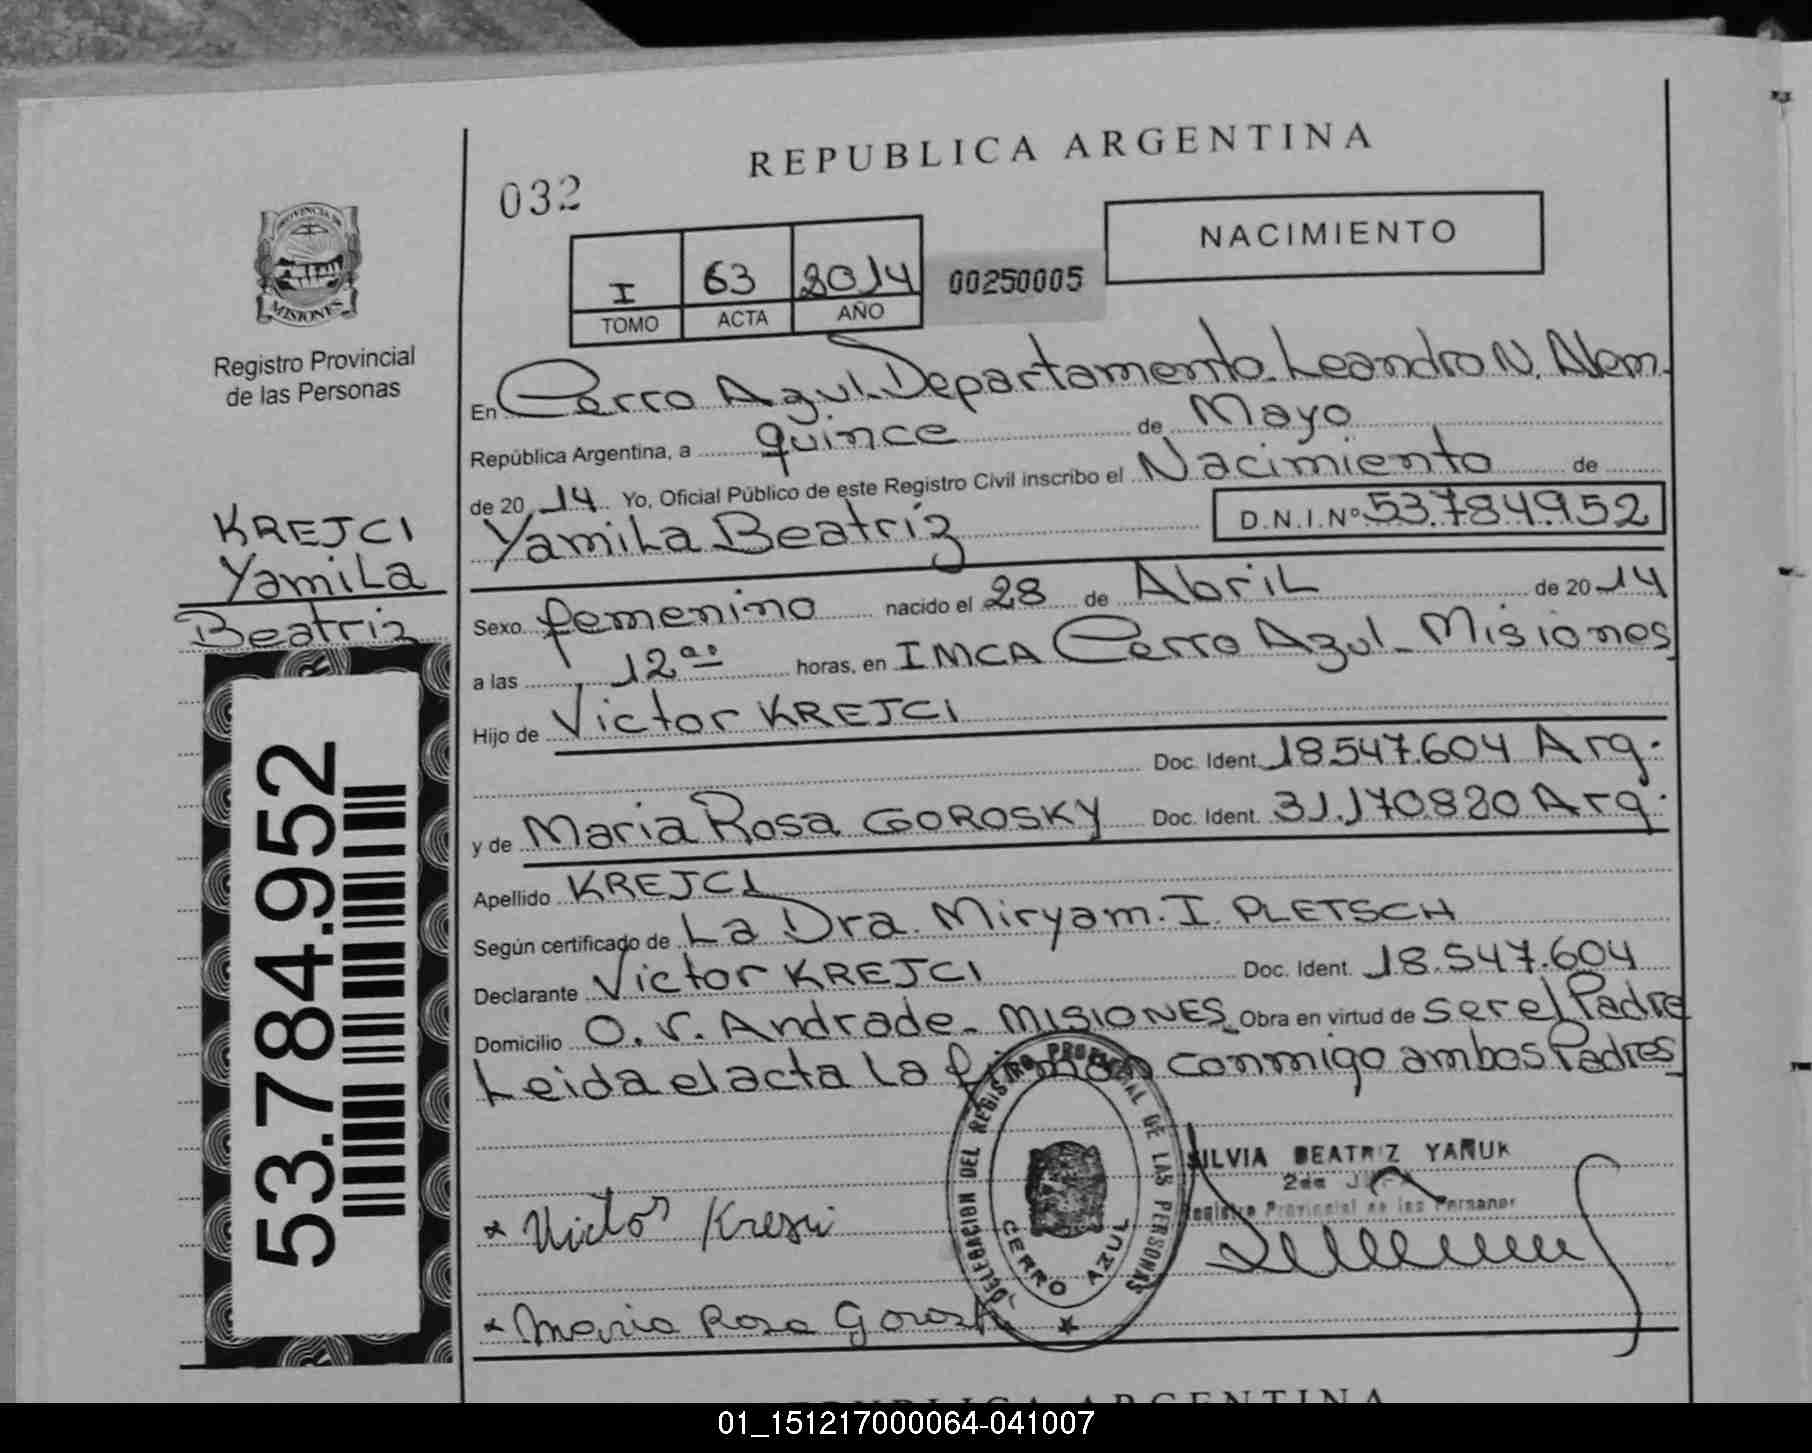 REPUBLICA ARGENTINA
032
NACIMIENTO
I 63 2014 00250005
TOMO ACTA AÑO
PROVINCIA DE
MISIONES
Registro Provincial
de las Personas
KREJCI
Yamila
Beatriz
53.784.952
En Cerro Azul Departamento Leandro N. Alem.
República Argentina, a quince de Mayo
de 20 14 Yo, Oficial Público de este Registro Civil inscribo el Nacimiento de
Yamila Beatriz D.N.I.Nº 53.784.952
Sexo femenino nacido el 28 de Abril de 20 14
a las 12 ºº horas, en IMCA Cerro Azul - Misiones
Hijo de Victor KREJCI
Doc. Ident. 18.547.604 Arg.
y de Maria Rosa GOROSKY Doc. Ident. 31.170.820 Arg.
Apellido KREJCI
Según certificado de La Dra. Miryam. I. PLETSCH
Declarante Victor KREJCI Doc. Ident. 18.547.604
Domicilio O. V. Andrade - MISIONES Obra en virtud de ser el Padre
Leida el acta la firman conmigo ambos Padres
DELEGACION DEL REGISTRO PROVINCIAL DE LAS PERSONAS
CERRO AZUL
SILVIA BEATRIZ YAÑUK
2da JEFA
Registro Provincial de las Personas
Victor Kresci
Maria Rosa Gorosky
REPUBLICA ARGENTINA
01_151217000064-041007